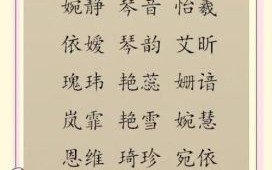 婉静 琴音 怡羲
依嫒 琴韵 艾昕
瑰玮 艳蕊 姗谙
岚霏 艳雪 婉慧
恩维 琦珍 宛依